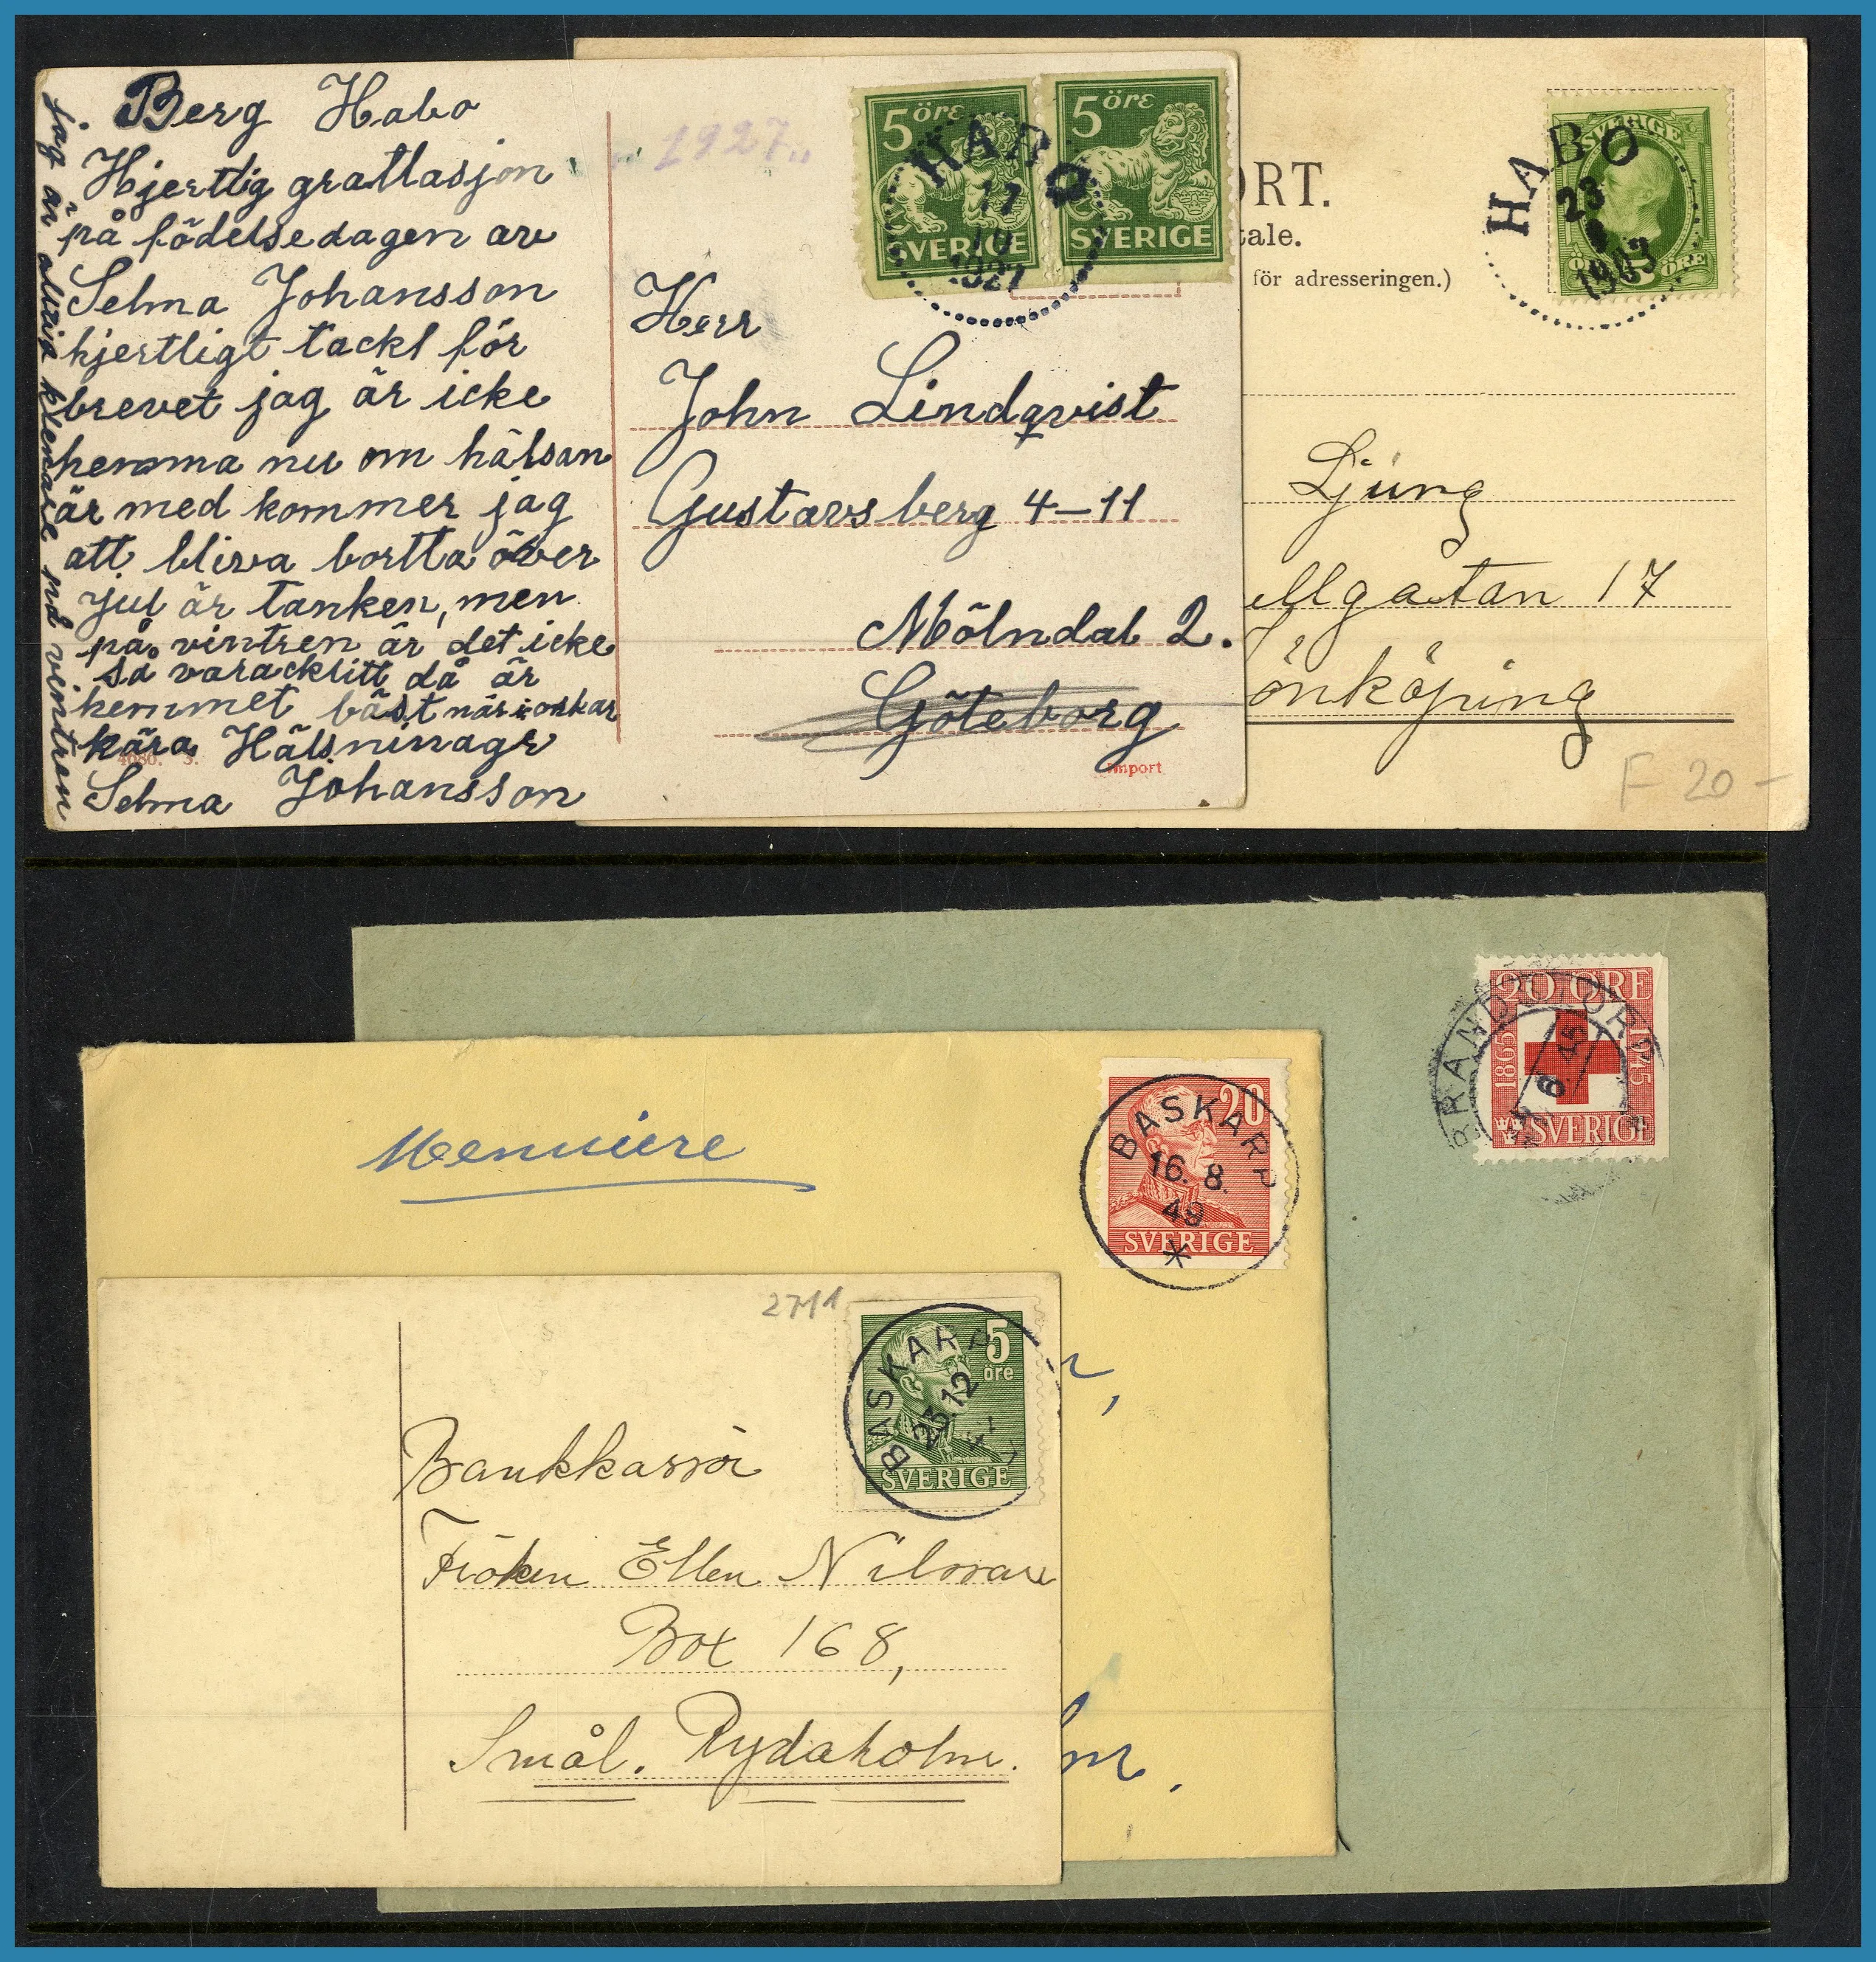 Berg Habo
Hjertlig grattasjon
på födelsedagen av
Selma Johansson
hjertligt tackt för
brevet jag är icke
hemma nu om hälsan
är med kommer jag
att bliva bortta över
jul är tanken, men
på vintren är det icke
så varackritt då är
hemmet bäst när
kära Hälsninagr
Selma Johansson
jag är aldrig på vintren
4080. 3.
"1927"
5 öre
SVERIGE
5 öre
SVERIGE
HABO
11
10
1927
Herr
John Lindqvist
Gustavsberg 4–11
Mölndal 2.
Göteborg
Import
ORT.
tale.
för adresseringen.)
SVERIGE
ÖRE
HABO
23
1903
Ljung
ellgatan 17
önköping
F 20–
20 ÖRE
1865
1945
SVERIGE
BRANDSTORP
6.45
20
SVERIGE
BASKARP
16.8.
49
r,
lm.
2711
5
öre
SVERIGE
BASKARP
23.12
Bankkassör
Fröken Ellen Nilsson
Box 168,
Smål. Rydaholm.